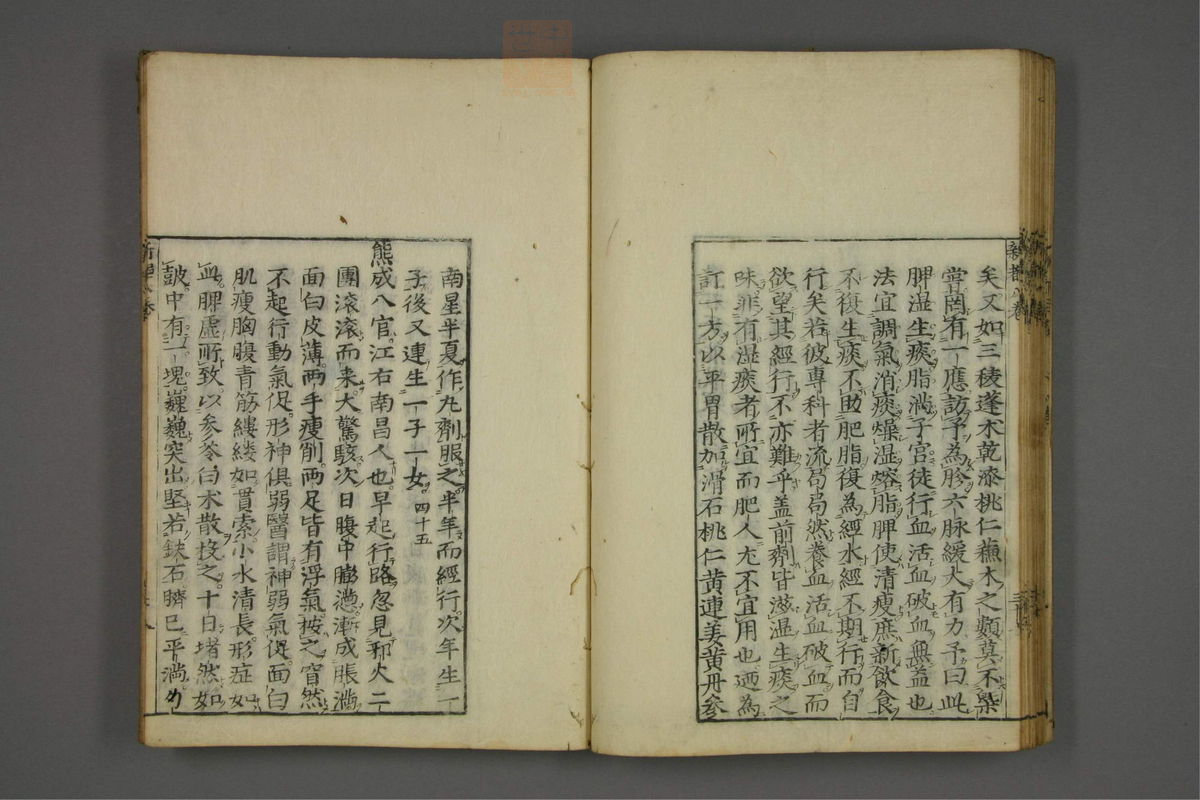 矣又如三稜蓬朮乾漆桃仁蘓木之類莫不槩
嘗罔有一應訪予為胗六脉緩大有力予曰此
脾湿生痰脂滿子宮徒行血活血破血無益也
法宜調氣消痰燥湿熔脂脾使清瘦庶新飲食
不復生痰不助肥脂復為經水經不期行而自
行矣若彼專科者流苟苟然養血活血破血而
欲望其經行不亦難乎盖前劑皆滋湿生痰之
味非有湿痰者所宜而肥人尤不宜用也廼為
訂一方以平胃散加滑石桃仁黄連姜黄丹參
南星半夏作丸劑服之半年而經行次年生一
子後又連生一子一女 四十五
熊成八官江右南昌人也早起行路忽見邪火二
團滾滾而来大驚駭次日腹中膨懣漸成脹滿
面白皮薄两手瘦削两足皆有浮氣按之窅然
不起行動氣促形神俱弱醫謂神弱氣促面白
肌瘦胸腹青筋縷縷如貫索小水清長形症如
血脾虛所致以参苓白朮散投之十日堵然如
鼓中有一塊巍巍突出堅若鉄石臍已平滿勺